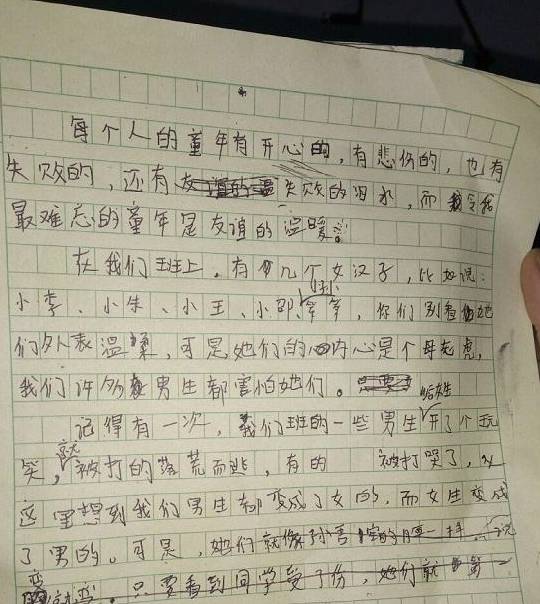 每个人的童年有开心的，有悲伤的，也有
失败的，还有失败的泪水，而令我
最难忘的童年是友谊的温暖。
在我们班上，有几个女汉子，比如说：
小李、小朱、小王、小邵、等等，你们别看她
们外表温柔，可是她们的内心是个母老虎，
我们许多男生都害怕她们。
记得有一次，我们班的一些男生给女生开了个玩
笑，就被打的落荒而逃，有的被打哭了，从
这里想到我们男生都变成了女的，而女生变成
了男的。可是，她们就像孙悟空的脸一样，说
变就变。只要看到同学受了伤，她们就第一